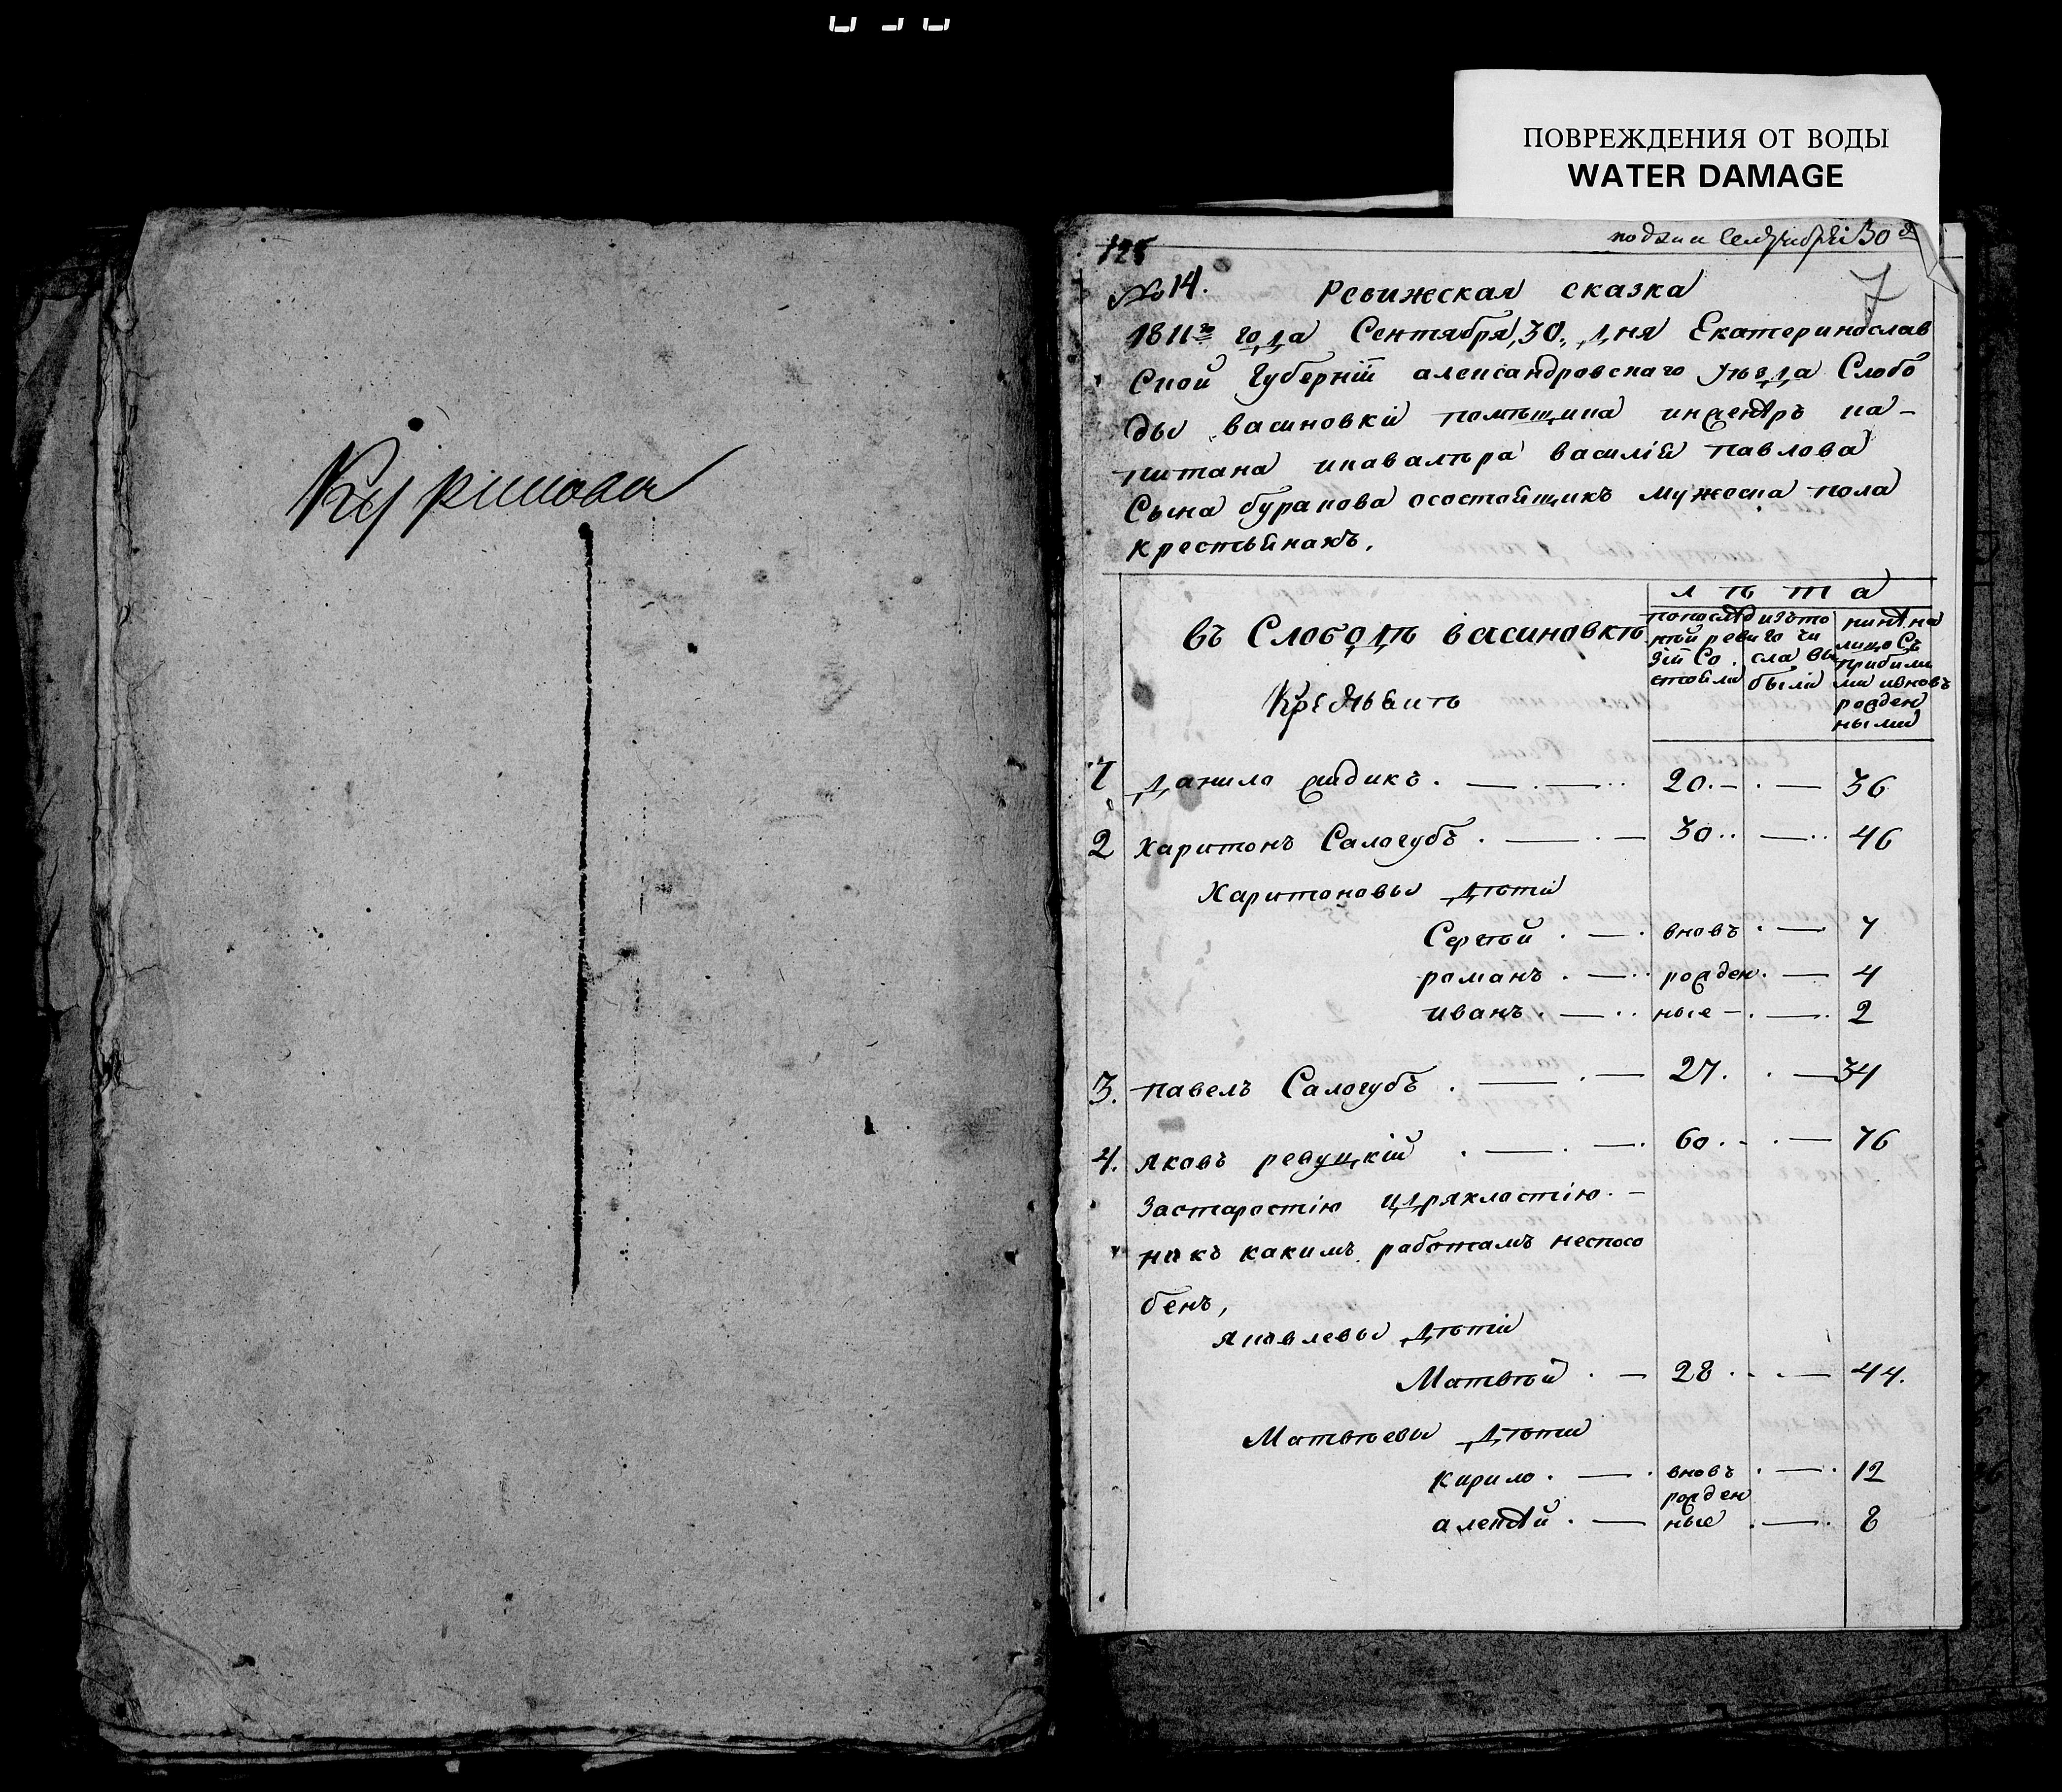 ПОВРЕЖДЕНИЯ ОТ ВОДЫ
WATER DAMAGE
125
№ 14. Ревижская сказка
7
1811го года Сентября, 30, дня Екатеринослав
Скои Губерніи александровскаго уѣзда Слобо
ды васиновки помѣщика
питана икавалѣра василія павлова
Сына буракова осостоящихъ мужеска пола
крестьянахъ.
лѣта
въ Слободѣ васиновкѣ
попослѣд
нѣй реви
зіи Со
стояли
изъ то
го чи
сла вы
были
нынѣ на
лицо Съ
прибылы
ми ивновь
рожден
ными
Крестьянъ
1 данило . — . — .. 20. — . — 36
2 харитонъ Салогубъ . — . — 30 .. — .. 46
Харитоновы дѣти
Сергѣй . — . вновь . — 7
романъ . — .. рожден . — 4
иванъ . — .. ные — . — . 2
3. павелъ Салогубъ . — . — 27. . — 34
4. яковъ ревуцкій . — . — . 60 . - . — 76
Застаростію идряхлостію . —
никъ какимъ работамъ неспосо
бенъ,
яковлевы дѣти
Матвѣй . — 28 . . — 44.
Матвѣевы дѣти
кирило . — . вновь . — . 12
рожден
алексѣй . — ные . — . 8